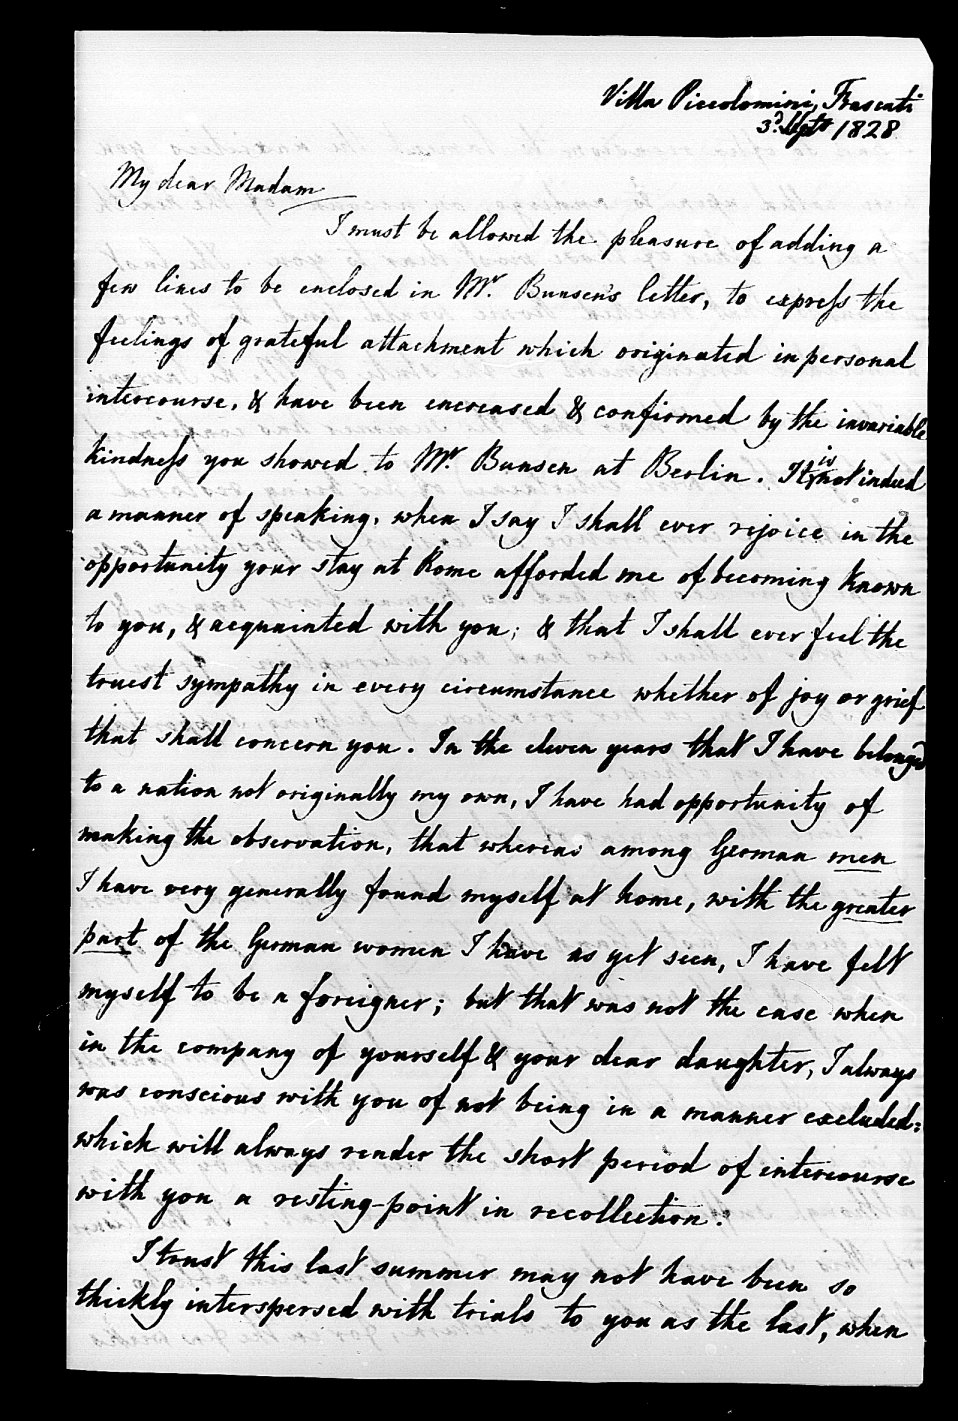 Villa Piccolomini, Frascati
3d Septr 1828
My dear Madam
I must be allowed the pleasure of adding a
few lines to be enclosed in Mr. Bunsen's letter, to expreſs the
feelings of grateful attachment which originated in personal
intercourse, & have been encreased & confirmed by the invariable
kindneſs you showed to Mr. Bunsen at Berlin. It is not indeed
a manner of speaking, when I say I shall ever rejoice in the
opportunity your stay at Rome afforded me of becoming known
to you, & acquainted with you; & that I shall ever feel the
truest sympathy in every circumstance whether of joy or grief
that shall concern you. In the eleven years that I have belonged
to a nation not originally my own, I have had opportunity of
making the observation, that whereas among German men
I have very generally found myself at home, with the greater
part of the German women I have as yet seen, I have felt
myself to be a foreigner; but that was not the case when
in the company of yourself & your dear daughter, I always
was conscious with you of not being in a manner excluded:
which will always render the short period of intercourse
with you a resting-point in recollection.
I trust this last summer may not have been so
thickly interspersed with trials to you as the last, when